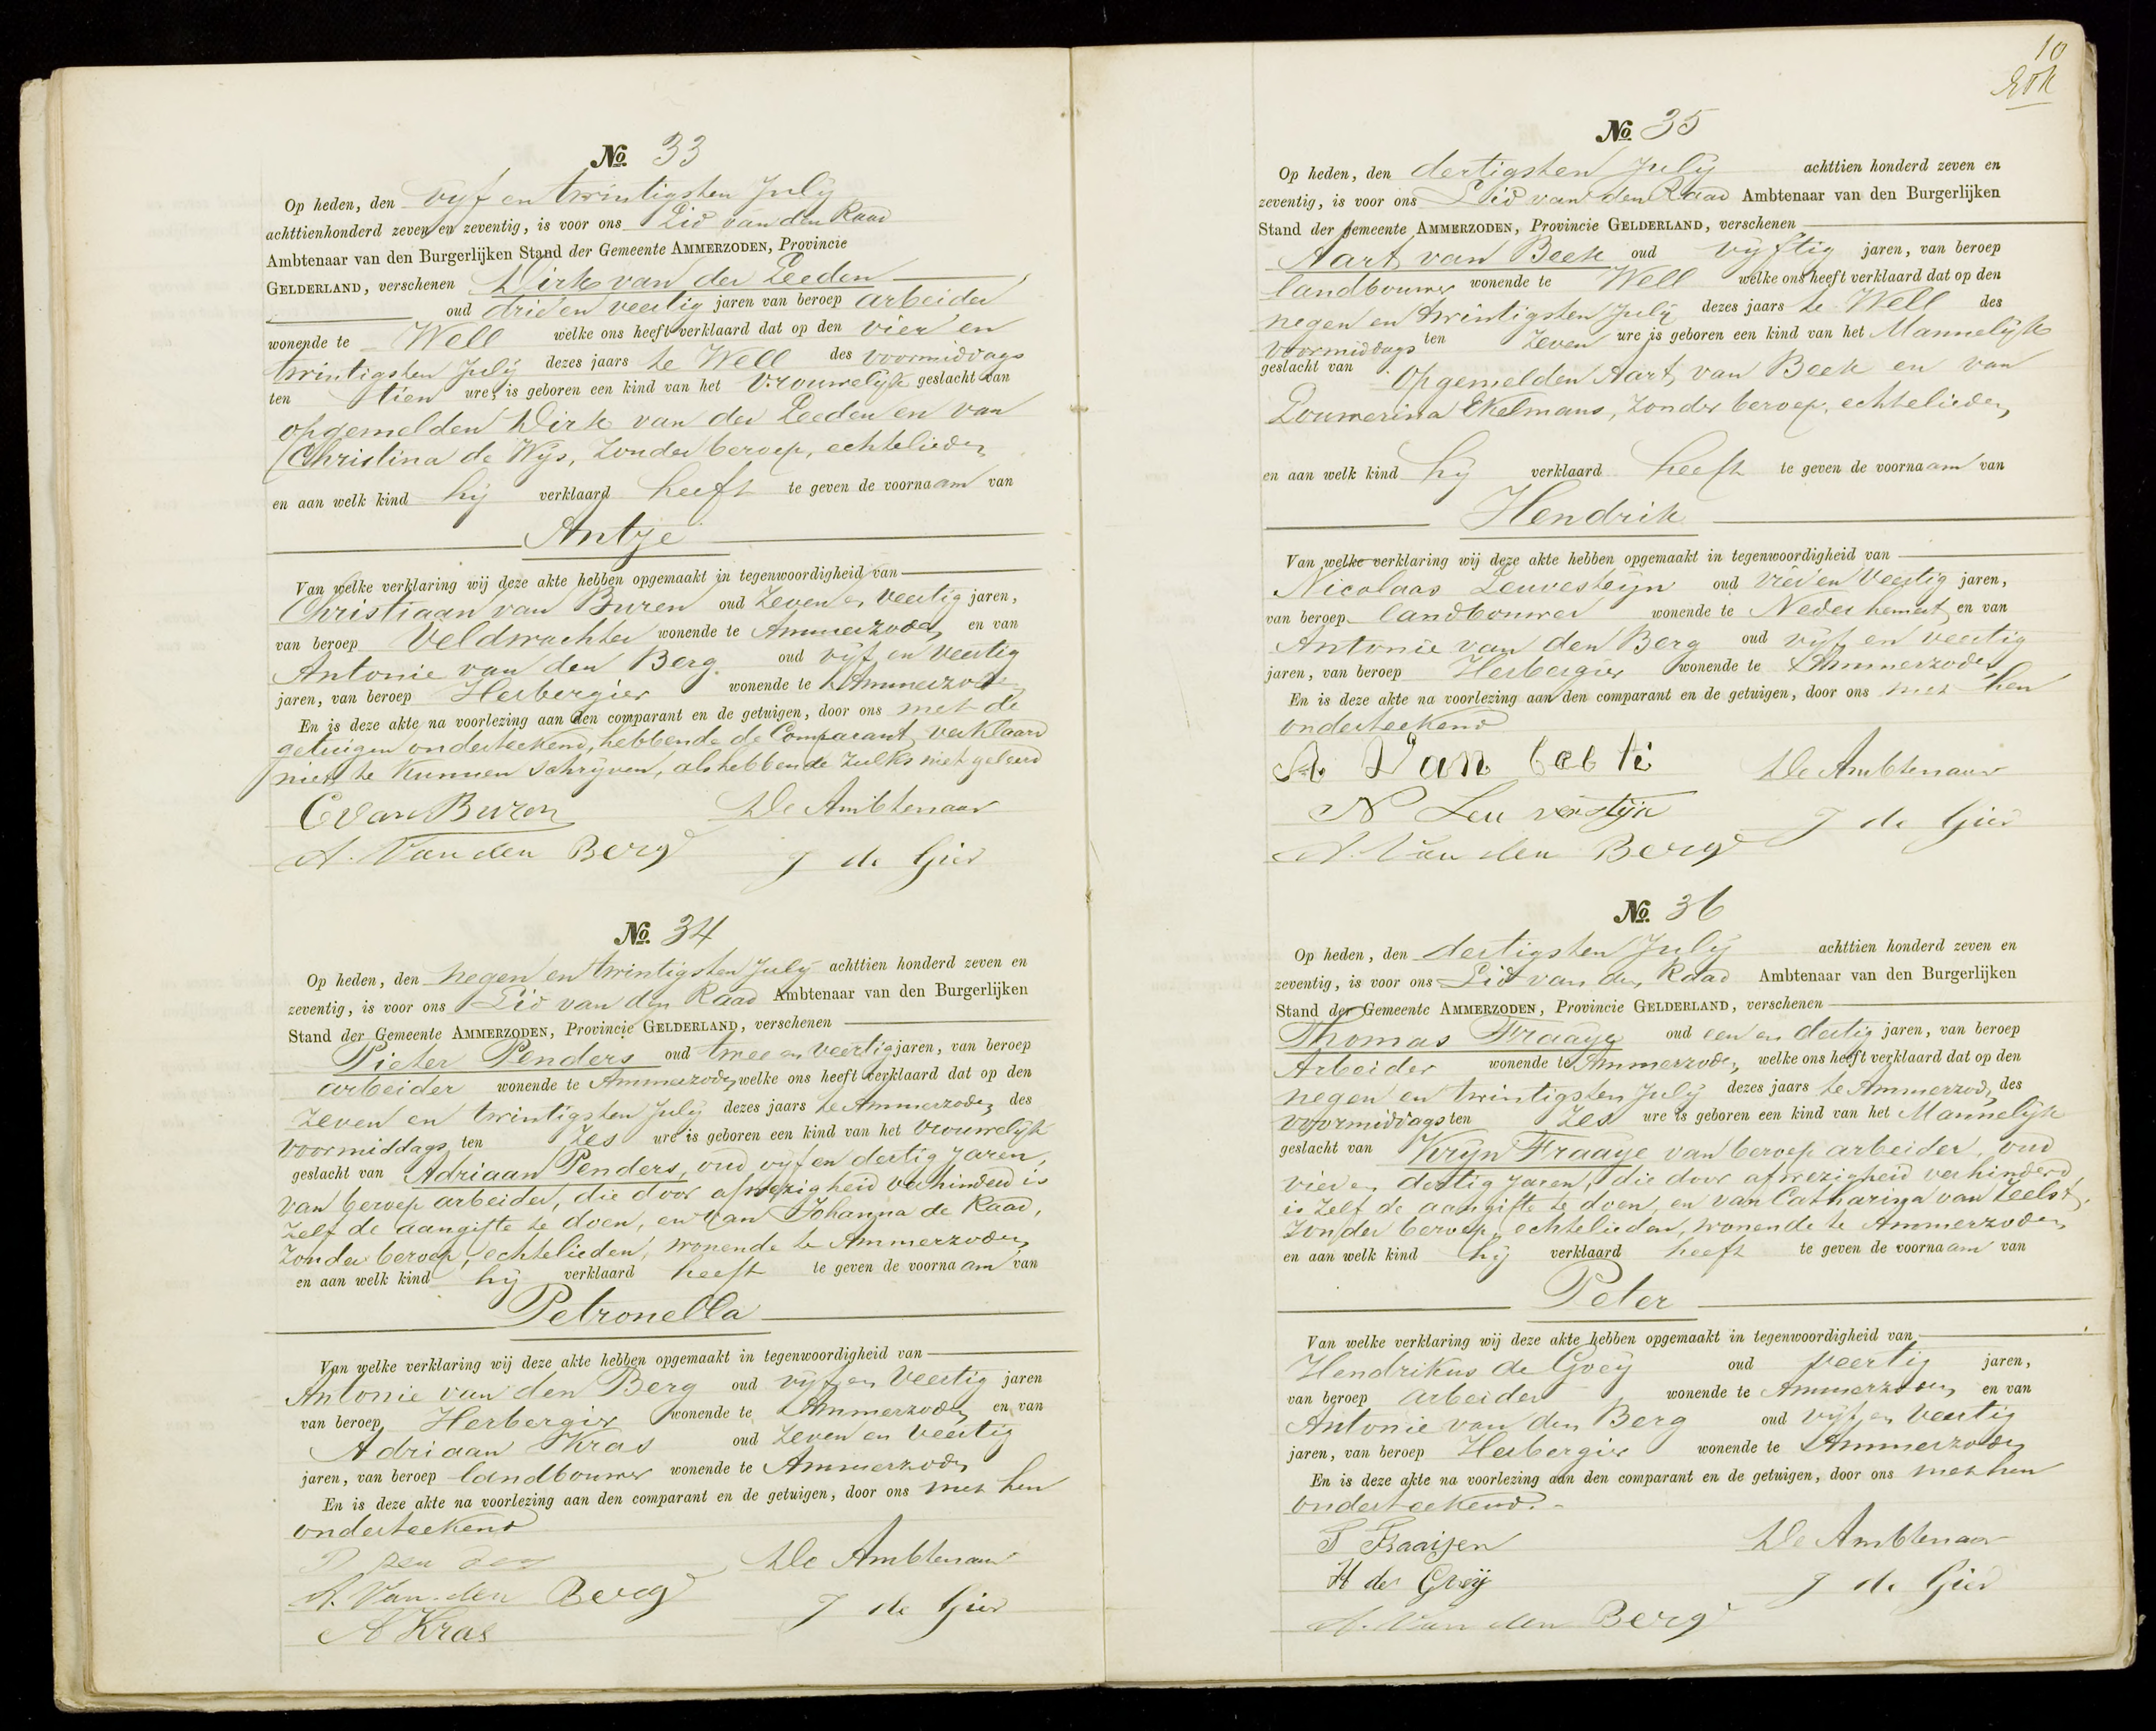 No. 33
Op heden, den vijf en twintigsten July
achttienhonderd zeven en zeventig, is voor ons Lid van den Raad
Ambtenaar van den Burgerlijken Stand der Gemeente AMMERZODEN, Provincie
GELDERLAND, verschenen Dirk van der Leeden
oud drie en veertig jaren van beroep arbeider
wonende te Well welke ons heeft verklaard dat op den vier en
twintigsten July dezes jaars te Well des voormiddags
ten tien ure, is geboren een kind van het Vrouwelijk geslacht van
opgemelden Dirk van der Leeden en van
Christina de Wijs, zonder beroep, echtelieden
en aan welk kind hij verklaard heeft te geven de voornaam van
Antje
Van welke verklaring wij deze akte hebben opgemaakt in tegenwoordigheid van
Christiaan van Buren oud zeven en veertig jaren,
van beroep Veldwachter wonende te Ammerzoden en van
Antonie van den Berg oud vijf en veertig
jaren, van beroep Herbergier wonende te Ammerzoden
En is deze akte na voorlezing aan den comparant en de getuigen, door ons met de
getuigen onderteekend, hebbende de Comparant verklaard
niet te kunnen schrijven, als hebbende zulks niet geleerd
C van Buren De Ambtenaar
A. Van den Berg J de Gier
No. 34
Op heden, den negen en twintigsten July achttien honderd zeven en
zeventig, is voor ons Lid van den Raad Ambtenaar van den Burgerlijken
Stand der Gemeente AMMERZODEN, Provincie GELDERLAND, verschenen
Pieter Penders oud twee en veertig jaren, van beroep
arbeider wonende te Ammerzoden welke ons heeft verklaard dat op den
zeven en twintigsten July dezes jaars te Ammerzoden des
voormiddags ten zes ure is geboren een kind van het vrouwelijk
geslacht van Adriaan Penders, oud vijf en dertig jaren,
van beroep arbeider, die door afwezigheid verhinderd is
zelf de aangifte te doen, en van Johanna de Raad,
zonder beroep, echtelieden, wonende te Ammerzoden
en aan welk kind hij verklaard heeft te geven de voornaam van
Petronella
Van welke verklaring wij deze akte hebben opgemaakt in tegenwoordigheid van
Antonie van den Berg oud vijf en veertig jaren
van beroep Herbergier wonende te Ammerzoden en van
Adriaan Kras oud zeven en veertig
jaren, van beroep landbouwer wonende te Ammerzoden
En is deze akte na voorlezing aan den comparant en de getuigen, door ons met hen
onderteekend
P pen ders De Ambtenaar
A. Van den Berg J de Gier
A Kras
10
No. 35
Op heden, den dertigsten July achttien honderd zeven en
zeventig, is voor ons Lid van den Raad Ambtenaar van den Burgerlijken
Stand der Gemeente AMMERZODEN, Provincie GELDERLAND, verschenen
Aart van Beek oud vijftig jaren, van beroep
landbouwer wonende te Well welke ons heeft verklaard dat op den
negen en twintigsten July dezes jaars te Well des
voormiddags ten zeven ure is geboren een kind van het Mannelijk
geslacht van Opgemelden Aart van Beek en van
Louwerina Ekelmans, zonder beroep, echtelieden,
en aan welk kind hij verklaard heeft te geven de voornaam van
Hendrik
Van welke verklaring wij deze akte hebben opgemaakt in tegenwoordigheid van
Nicolaas Leuvesteijn oud vier en veertig jaren,
van beroep landbouwer wonende te Nederhemert en van
Antonie van den Berg oud vijf en veertig
jaren, van beroep Herbergier wonende te Ammerzoden
En is deze akte na voorlezing aan den comparant en de getuigen, door ons met hen
onderteekend
A. Van De Ambtenaar
N Leu verstijn J de Gier
A. Van den Berg
No. 36
Op heden, den dertigsten July achttien honderd zeven en
zeventig, is voor ons Lid van den Raad Ambtenaar van den Burgerlijken
Stand der Gemeente AMMERZODEN, Provincie GELDERLAND, verschenen
Thomas Fraaije oud een en dertig jaren, van beroep
Arbeider wonende te Ammerzoden, welke ons heeft verklaard dat op den
negen en twintigsten July dezes jaars te Ammerzoden des
voormiddags ten zes ure is geboren een kind van het Mannelijk
geslacht van Krijn Fraaije van beroep arbeider, oud
vier en dertig jaren, die door afwezigheid verhinderd
is zelf de aangifte te doen, en van Catharina van Zeelst,
zonder beroep, echtelieden, wonende te Ammerzoden,
en aan welk kind hij verklaard heeft te geven de voornaam van
Peter
Van welke verklaring wij deze akte hebben opgemaakt in tegenwoordigheid van
Hendrikus de Goeij oud veertig jaren,
van beroep arbeider wonende te Ammerzoden en van
Antonie van den Berg oud vijf en veertig
jaren, van beroep Herbergier wonende te Ammerzoden
En is deze akte na voorlezing aan den comparant en de getuigen, door ons met hen
onderteekend.
T Fraaijen De Ambtenaar
H de Goeij J de Gier
A. Van den Berg